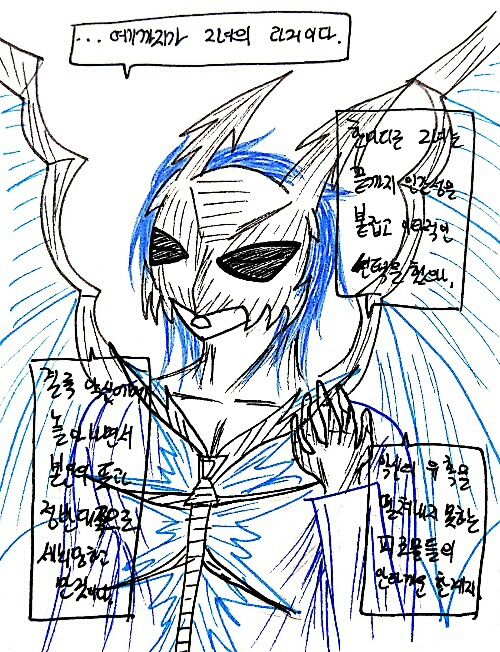 ... 여기까지가 그녀의 과거이다.
한마디로 그녀는
끝까지 인간성을
붙잡고 이타적인
선택을 했으나,
결국 악신에게
놀아나면서
본인의 뜻과
정반대쪽으로
세뇌당하고
만것이다.
악신의 유혹을
떨쳐내지 못하는
피조물들의
안타까운 한계지.